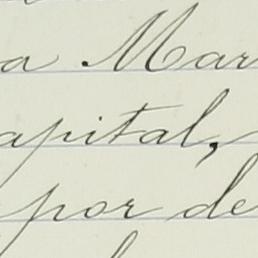 a Mar
apital,
por de